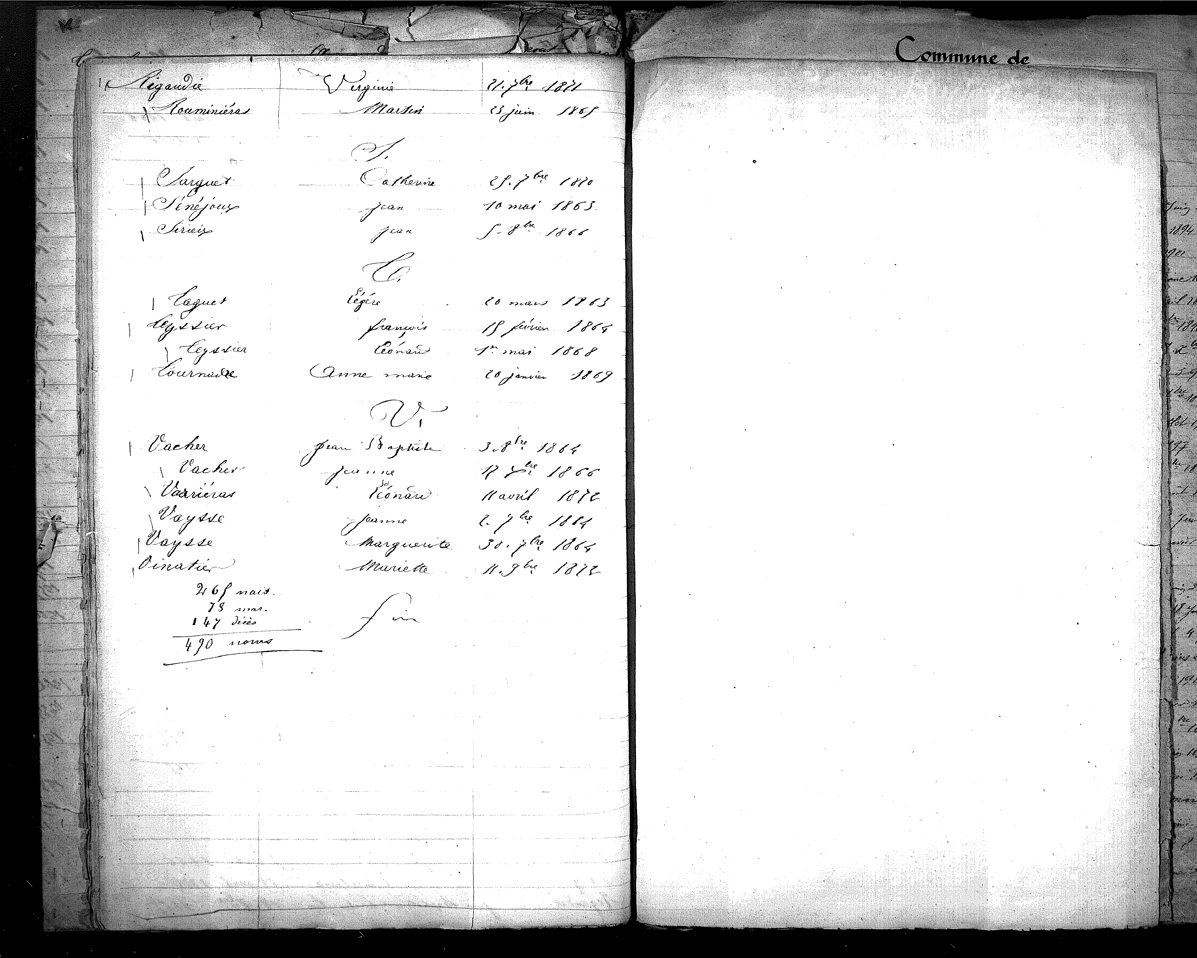 Rigaudie Virginie 21. 7bre 1871
Rouminiéras Martin 23 juin 1865
S.
Sarguet Catherine 25. 7bre 1870
Sénéjoux jean 10 mai 1863
Serieix jean 5. 8bre 1866
T.
Taguet Légére 20 mars 1863
Teyssier françois 15 février 1864
Teyssier Léonard 1er mai 1868
Tournade Anne marie 20 janvier 1869
V.
Vacher jean Baptiste 3. 8bre 1864
Vacher jeanne 12 7bre 1866
Varriéras Léonard 11 avril 1872
Vaysse jeanne 2. 7bre 1864
Vaysse Marguerite 30. 7bre 1864
Vinatier Mariette 11. 9bre 1872
265 nais.
78 mar.
147 décès
490 noms
fin
Commune de